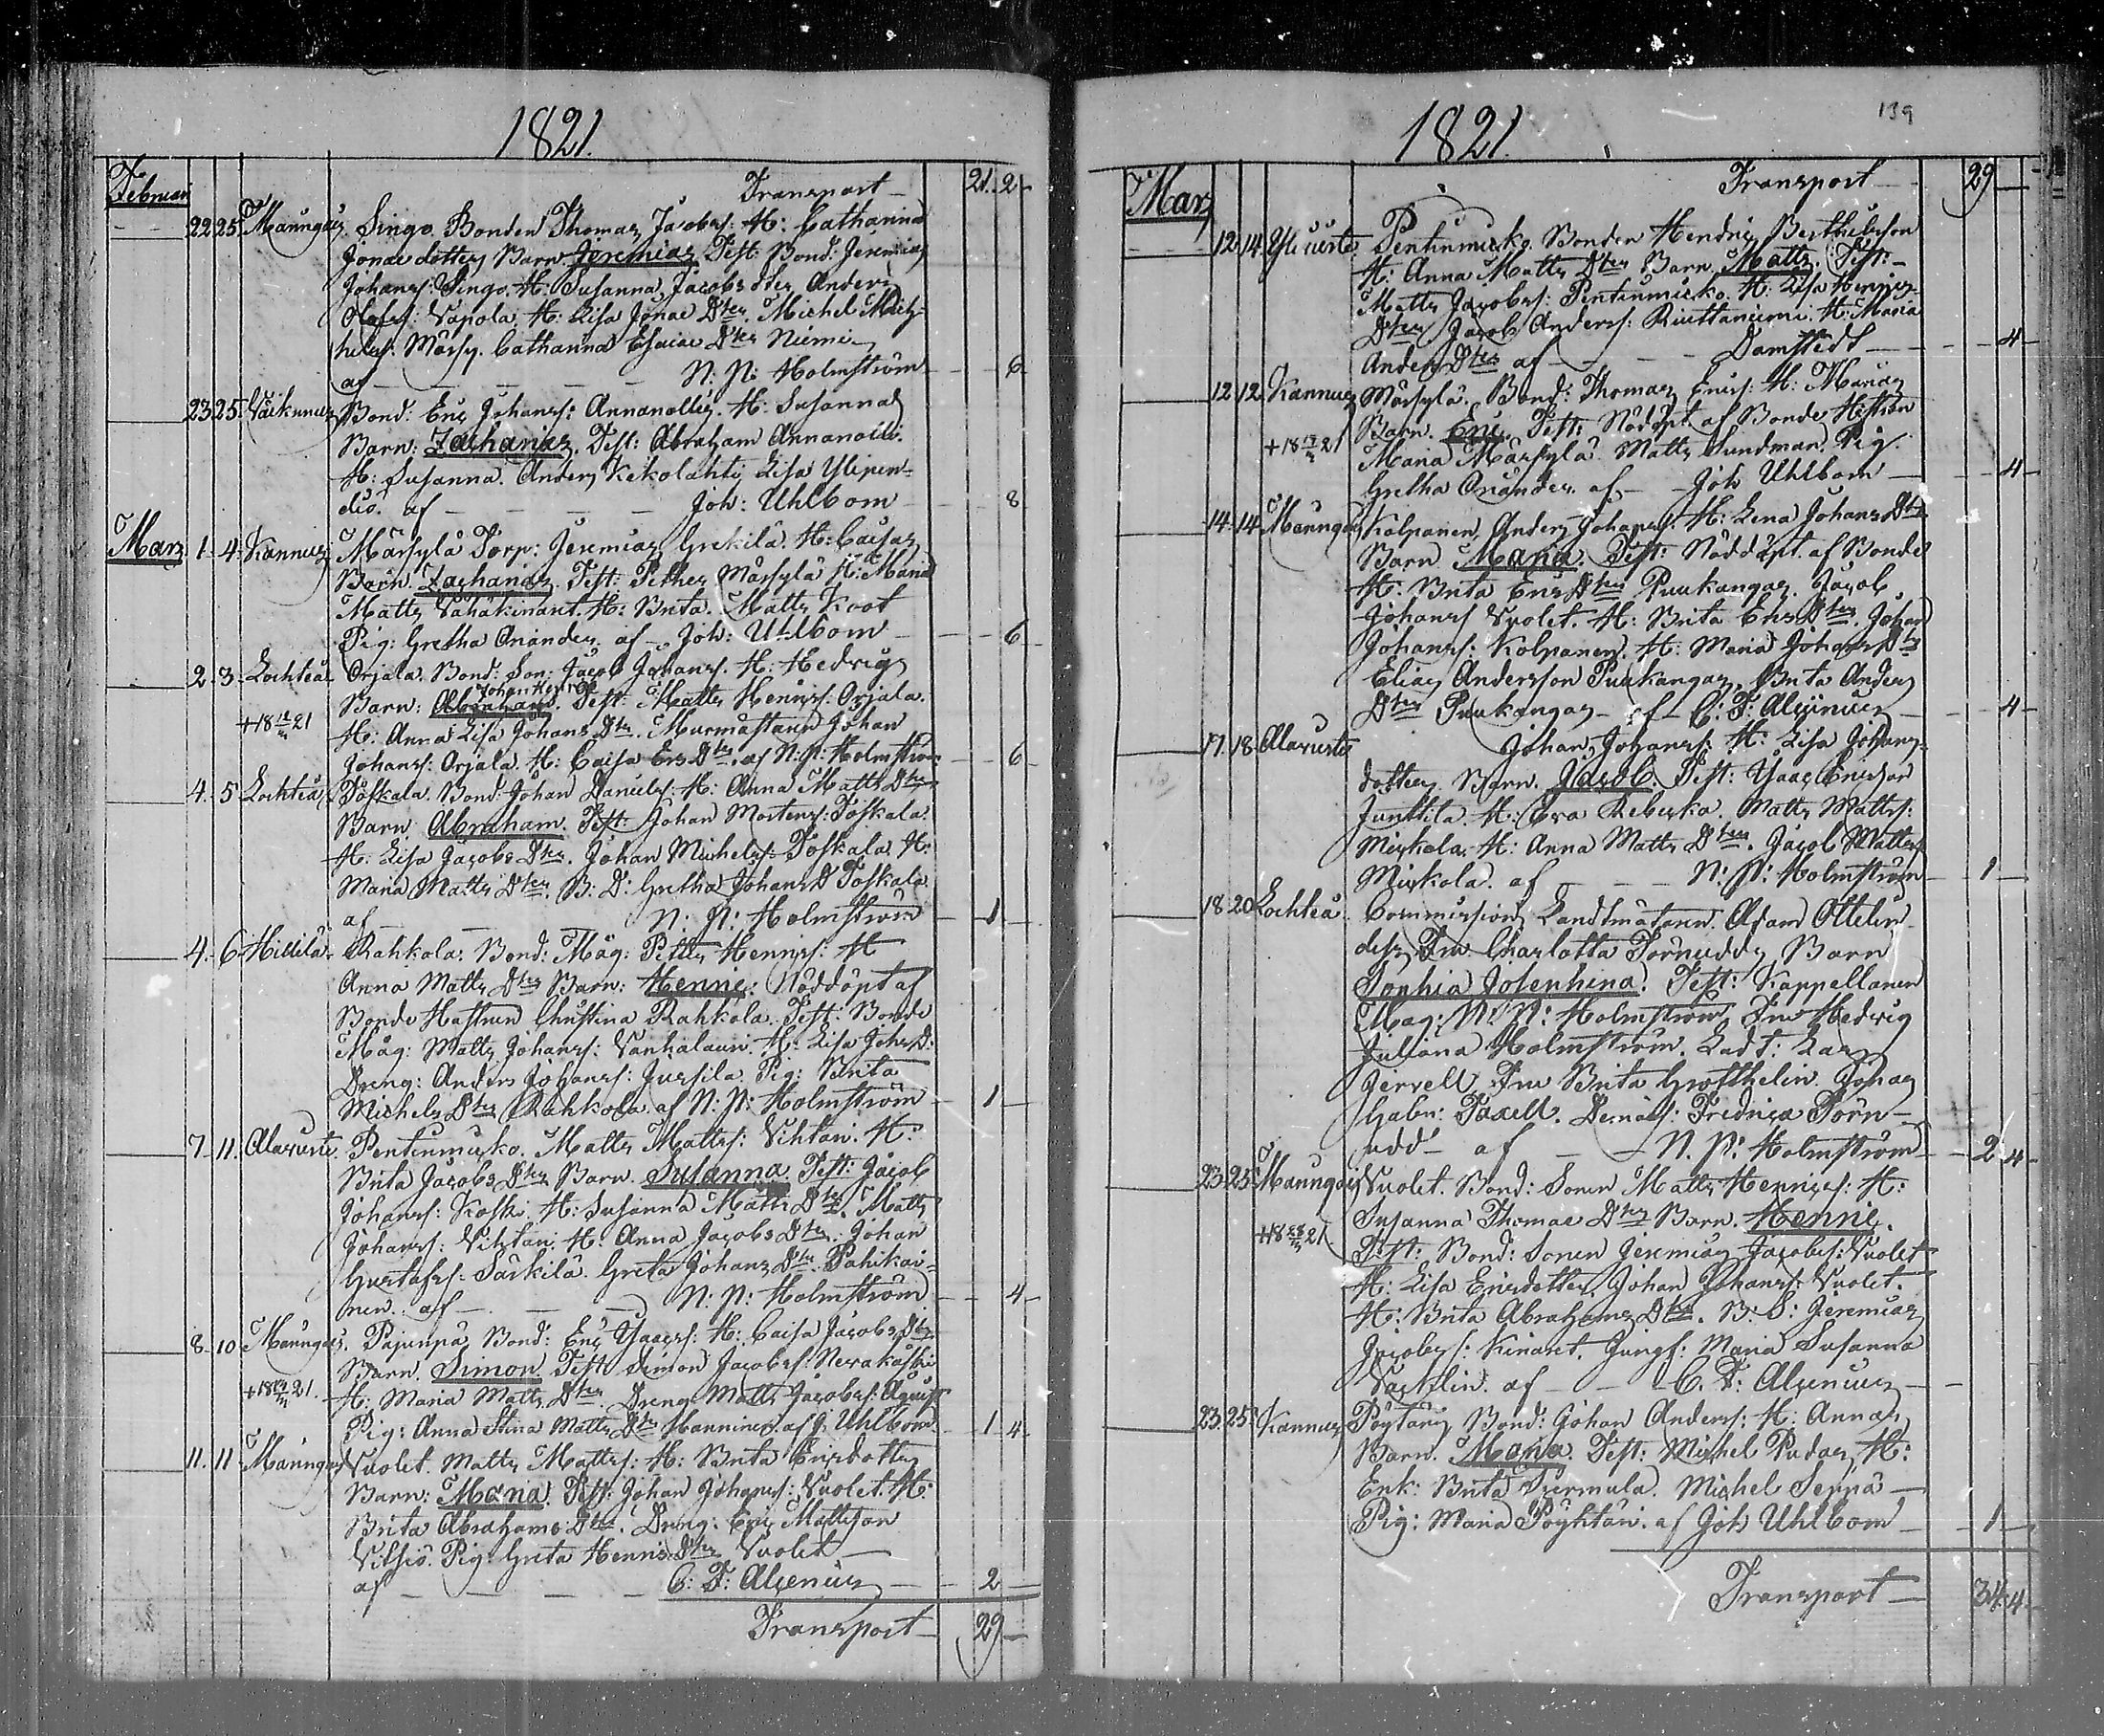 1821.
Februari Transport 21. 2
22 25 Maungais Singo. Bonden Thomas Jacobs: H: Catharina
Jonae dotters Barn Jeremias. Test: Bond: Jeremias
Johans: Singo. H: Susanna Jacobs dter Anders
Olofss: Vapola. H: Lisa Jonae Dter. Michel Mich-
helss: Märsy. Catharina Esaiae Dter Niemi
af N: N: Holmström 6
23 25 Bond: Eric Johans: Annanollis. H: Susannas
Barn: Zacharias. Test: Abraham Annanolli.
H: Susanna. Anders Kekolahti Lisa Ylipen-
diö. af Joh: Uhlbom 8
Mars 1 4 Kannus Märsylä Torp: Jeremias Grekilä. H: Caisas
Barn. Zacharias. Test: Petter Märsylä H: Maria
Matts Vähäkinant. H: Brita. Matts Koot
Pig: Gretha Onander af Joh: Uhlbom 6
2 3 Lochteå Orjala. Bond: Son: Jacob Johans: H: Hedvigs
Johan Henric
Barn: Abraham. Test: Matts Henrics: Orjala.
+18 21 H: Anna Lisa Johans Dter. Murmästaren Johan
Johans: Orjala. H: Caisa Ers Dter. af N: N: Holmström 6
4 5 Lochteå Poskala. Bond: Johan Daniels: H: Anna Matts Dters
Barn: Abraham. Test: Johan Mortens: Poskala.
H: Lisa Jacobs Dter. Johan Michels: Poskala H:
Maria Matts Dter. B: D: Gretha Johans D Poskala.
af N: N: Holmström 1
4 6 Hillilä Rahkola. Bond: Måg: Petter Henrics: H
Anna Matts Dters Barn: Henric: Nöddöpt af
Bonde Hustrun Christina Rahkola. Test: Bonde
Måg: Matts Johans: Vanhalaun. H: Lisa Johs D:
Dreng: Anders Johans: Jussila. Pig: Brita
Michels Dter Rahkola af N: N: Holmström 1
7 11 Alaviirte Pentinmicko. Matts Matts: Vihtari. H:
Brita Jacobs Dters Barn. Susanna. Test: Jacob
Johans: Koski. H: Susanna Matts Dter. Matts
Johans: Vihtari. H: Anna Jacobs Dter. Johan
Gustafs: Särkilä. Greta Johans Dter. Pahikai-
nen. af N: N: Holmström 4
8 10 Maungais. Pajunpä Bond: Eric Ysaacs: H: Caisa Jacobs Dters
Barn. Simon. Test: Simon Jacobs: Nerakoski
+18 21. H: Maria Matts Dter. Dreng Matts Jacobs:
Pig: Anna Stina Matts Dter Hanninen. af J: Uhlbom 1 4
11 11 Maungais Vuolet. Matts Matts: H: Brita Ericsdotters
Barn: Maria. Test: Johan Johans: Vuolet. H:
Brita Abrahams Dter. Dreng: Eric Mattsson
Vilsiö. Pig: Greta Henrics Dter Vuolet
af C: F: Alcenius 2
Transport 29

139
1821.
Mars Transport 29
12 14 Yliviirte Pentinmicko. Bonden Hendric Berthelsson
H: Anna Matts Dters Barn Matts. Test:
Matts Jacobs: Pentinmicko. H: Lisa Henrics
Dter Jacob Anders: Riuttaniemi. H: Maria
Anders Dter af Damstedt 4
12 12 Kannus Märsylä. Bond: Thomas Erics: H: Marias
Barn. Eric. Test: Nöddöpt af Bonde Hustrun
+18 21 Maria Märsylä. Matts Sundman. Pig:
Gretha Onander. af Joh Uhlbom 4
14 14 Maungais Kolpanen, Anders Johans: H: Lena Johans Dters
Barn Maria. Test: Nöddöpt. af Bonde
H: Brita Erics Dter Puukangas. Jacob
Johans: Vuolet. H: Brita Erics Dter. Johan
Johans: Kolpanen. H: Maria Johans Dter
Elias Andersson Puukangas, Brita Anders
Dter Puukangas af C: F: Alcenius 4
17 18 Alaviirte Johan Johans: H: Lisa Johans
dotters Barn. Jacob. Test: Ysaac Ericsson
Junttila. H: Eva Rebecka. Matts Matts:
Mickola. H: Anna Matts Dter. Jacob Matts:
Mickola. af N: N: Holmström 1
18 20 Lochteå Commissions Landtmätaren Adam Ottelin
des Fru Charlotta Törnudds Barn
Sophia Josephina. Test: Kappellanen
Mag: N: N: Holmström, Fru Hedvig
Juliana Holmström. Ladt: Lars
Jervell Fru Brita Grotthelin. Jonas
Gabr: Taxell. Demois: Fredrica Törn-
udd af N. N: Holmström 2 4
23 25 Maungais Vuolet. Bond: Sonen Matts Henrics: H:
Susanna Thomae Dters Barn. Henric.
+18 21. Test: Bond: Sonen Jeremias Jacobs: Vuolet
H: Lisa Ericsdotter, Johan Johans: Vuolet.
H: Brita Abrahams Dter. B: S: Jeremias
Jacobs: Kinant. Jungf: Maria Susanna
af C. F: Alcenius
23 25 Kannus Pöytäri Bond: Johan Anders: H: Annas
Barn. Maria. Test: Michel Pudas H:
Enk: Brita Miche Seppä
Pig: Maria Pöyhtäri. af Joh Uhlbom 1
Transport 34 4